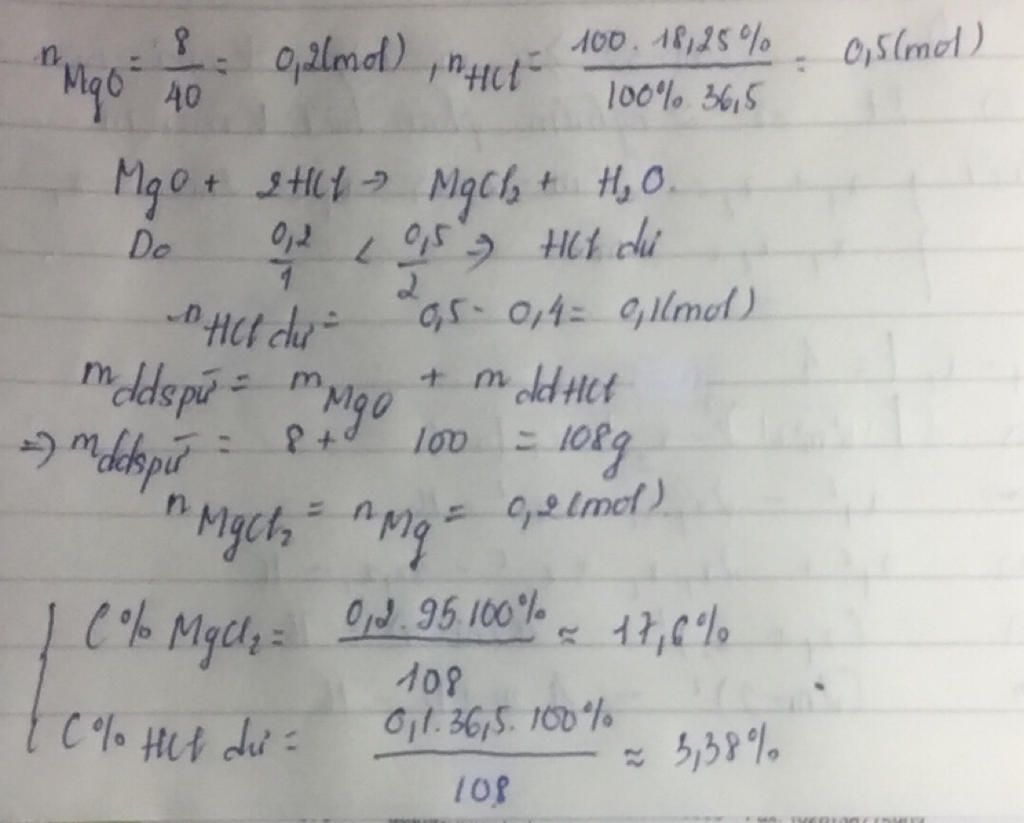 nMgO = 8/40 = 0,2(mol), nHCl = 100.18,25%/100%.36,5 = 0,5(mol)
MgO + 2HCl → MgCl₂ + H₂O.
Do 0,2/1 < 0,5/2 ⇒ HCl dư
nHCl dư = 0,5 - 0,4 = 0,1(mol)
mddspứ = mMgO + mddHCl
⇒ mddspứ = 8 + 100 = 108g
nMgCl₂ = nMg = 0,2(mol)
C% MgCl₂ = 0,2.95.100%/108 ≈ 17,6%
C% HCl dư = 0,1.36,5.100%/108 ≈ 3,38%